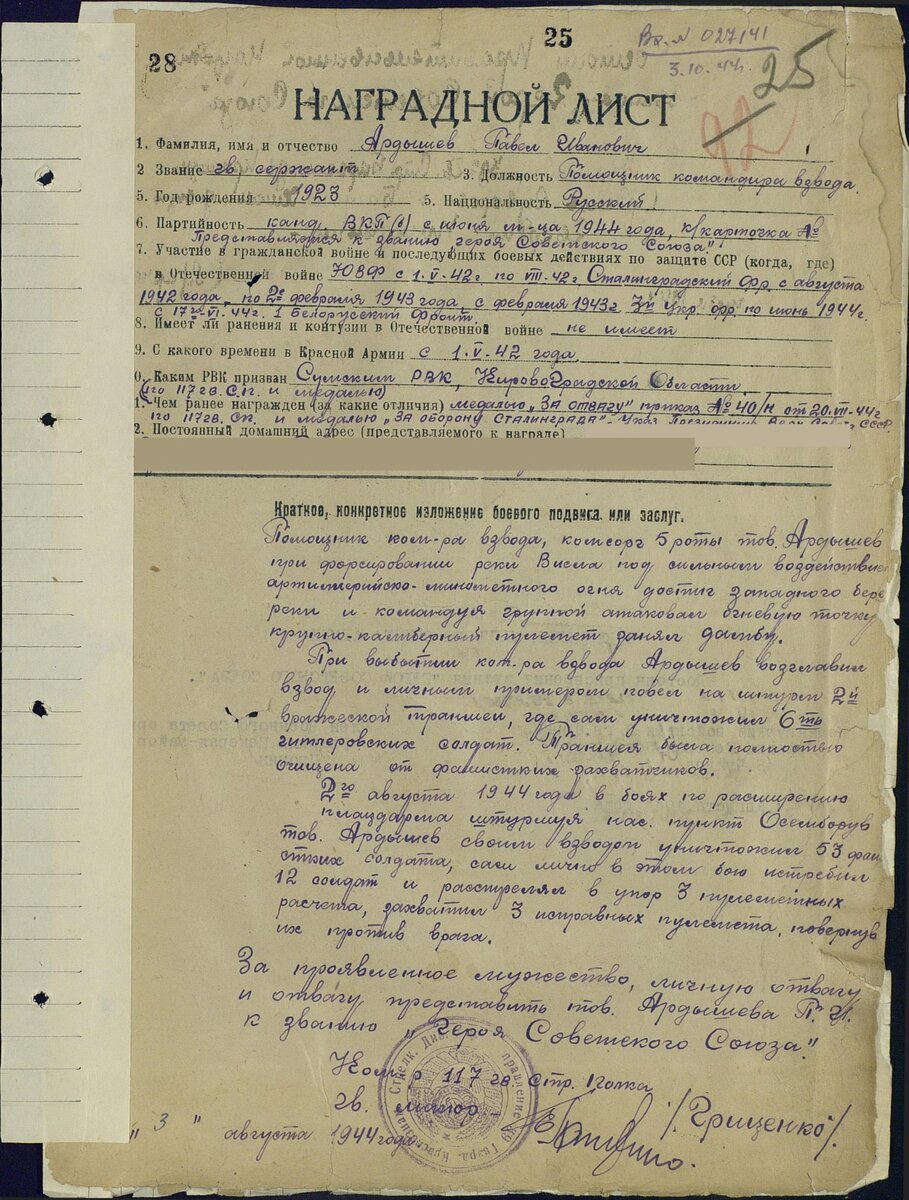 25
Вх. № 027141
3.10.44г.
28
25
92
НАГРАДНОЙ ЛИСТ
1. Фамилия, имя и отчество Ардышев Павел Иванович
2 Звание гв. сержант 3. Должность Помощник командира взвода.
5. Год рождения 1923 5. Национальность Русский
6. Партийность канд. ВКП(б) с июня м-ца 1944 года, к/карточка №
Представляется к званию героя Советского Союза"
7. Участие в гражданской войне и последующих боевых действиях по защите ССР (когда, где)
в Отечественной войне ЮЗФ с 1.V-42г. по VIII-42г. Сталинградский фр. с августа
1942 года, по 2е февраля 1943 года, с февраля 1943г 3й Укр. фр. по июнь 1944г.
с 17го VI. 44г. 1 Белорусский фронт
8. Имеет ли ранения и контузии в Отечественной войне не имеет
9. С какого времени в Красной Армии с 1.V-42 года.
0. Каким РВК призван Сумским РВК, Кировоградской Области
(по 117 гв. С.П. и медалью)
1. Чем ранее награжден (за какие отличия) медалью „ЗА ОТВАГУ" приказ № 40/н от 20.VII-44г
по 117 гв. Сп. и медалью „ЗА оборону СТАЛИНГРАДА" - Указ СССР
2. Постоянный домашний адрес (представляемого к награде)
Краткое, конкретное изложение боевого подвига или заслуг.
Помощник ком-ра взвода, комсорг 5 роты тов. Ардышев
при форсировании реки Висла под сильным воздействием
артиллерийско-минометного огня достиг западного бере
реки и командуя группой атаковал огневую точку
крупно-калиберный пулемет занял дамбу.
При выбытии ком-ра взвода Ардышев возглавил
взвод и личным примером повел на штурм 2й
вражеской траншеи, где сам уничтожил 6ть
гитлеровских солдат. Траншея была полностью
очищена от фашистких захватчиков.
2го августа 1944 года в боях по расширению
плацдарма штурмуя нас. пункт Осемборув
тов. Ардышев своим взводом уничтожил 53 фаш
стких солдата, сам лично в этом бою истребил
12 солдат и расстрелял в упор 3 пулеметных
расчета, захватил 3 исправных пулемета, повернув
их против врага.
За проявленное мужество, личную отвагу
и отвагу представить тов. Ардышева П. И.
к званию „Героя Советского Союза."
Ком-р 117 гв. Стр. Полка
гв. майор /Гриценко/.
„ 3 " августа 1944 года